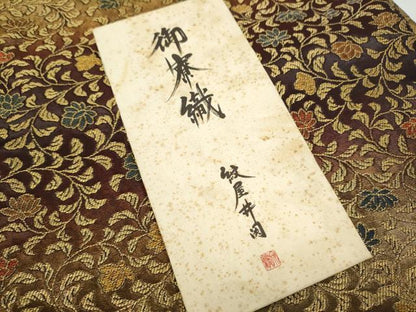 御寮織
紋屋井関